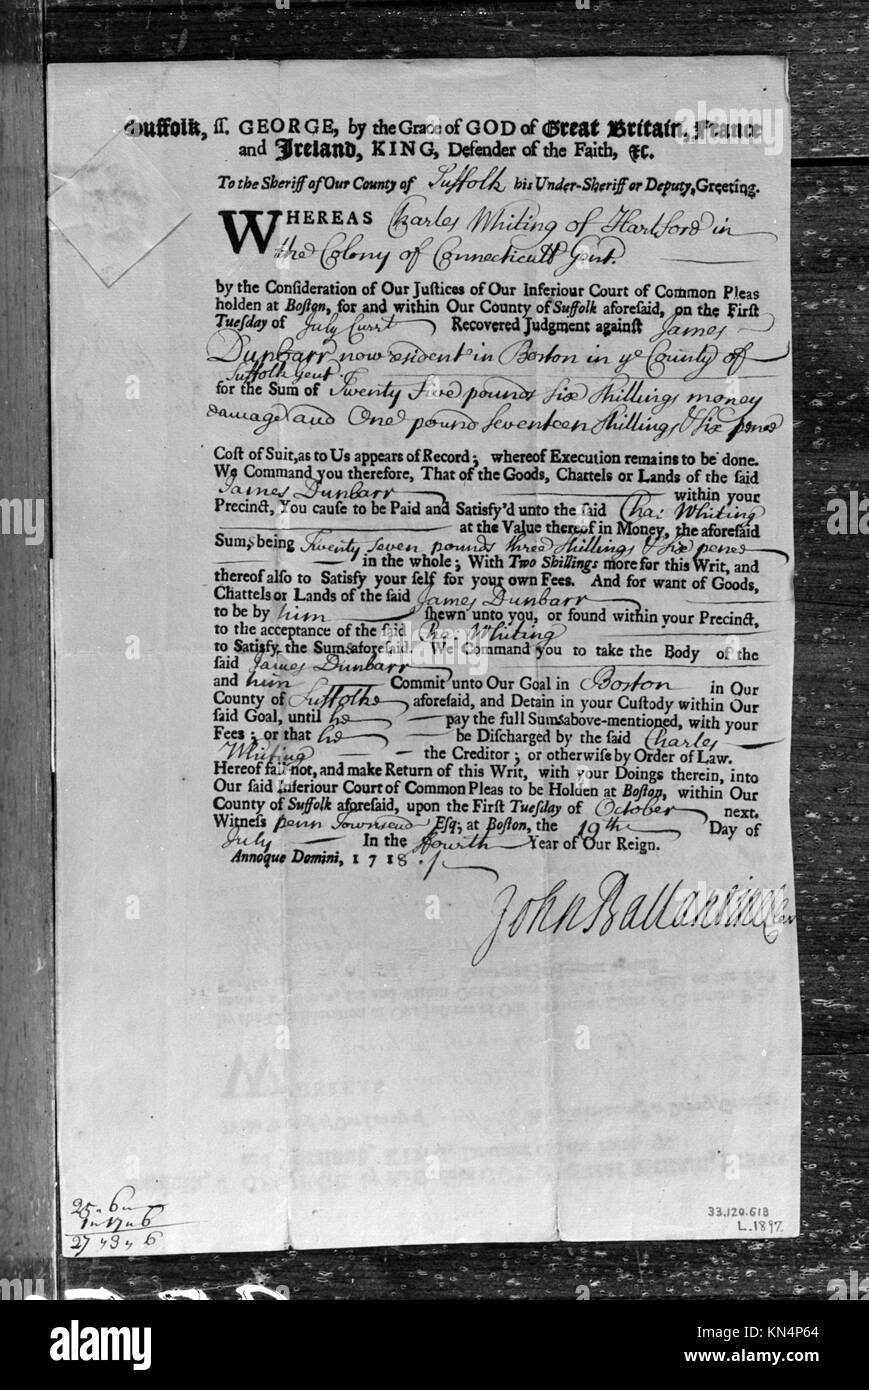 Suffolk, ss. GEORGE, by the Grace of GOD of Great Britain, France
and Ireland, KING, Defender of the Faith, &c.
To the Sheriff of Our County of Suffolk his Under-Sheriff or Deputy, Greeting.
WHEREAS Charles Whiting of Hartford in
the Colony of Connecticutt Gent.
by the Consideration of Our Justices of Our Inferiour Court of Common Pleas
holden at Boston, for and within Our County of Suffolk aforesaid, on the First
Tuesday of July Currt Recovered Judgment against James
Dunbarr now resident in Boston in ye County of
Suffolk Gent.
for the Sum of Twenty Five pounds Six Shillings money
damage and One pound Seventeen Shillings & Six pence
Cost of Suit, as to Us appears of Record; whereof Execution remains to be done.
We Command you therefore, That of the Goods, Chattels or Lands of the said
James Dunbarr within your
Precinct, You cause to be Paid and Satisfy'd unto the said Cha: Whiting
at the Value thereof in Money, the aforesaid
Sums, being Twenty Seven pounds three Shillings & Six pence
in the whole; With Two Shillings more for this Writ, and
thereof also to Satisfy your self for your own Fees. And for want of Goods,
Chattels or Lands of the said James Dunbarr
to be by him shewn unto you, or found within your Precinct,
to the acceptance of the said Cha: Whiting
to Satisfy the Sums aforesaid. We Command you to take the Body of the
said James Dunbarr
and him Commit unto Our Goal in Boston in Our
County of Suffolke aforesaid, and Detain in your Custody within Our
said Goal, until he pay the full Sums above-mentioned, with your
Fees; or that he be Discharged by the said Charles
Whiting the Creditor; or otherwise by Order of Law.
Hereof fail not, and make Return of this Writ, with your Doings therein, into
Our said Inferiour Court of Common Pleas to be Holden at Boston, within Our
County of Suffolk aforesaid, upon the First Tuesday of October next.
Witness Penn Townsend Esq; at Boston, the 19th Day of
July In the Fourth Year of Our Reign.
Annoque Domini, 1718.
John Ballantine Cler
25 " 6 "
1 " 17 " 6
27 " 3 " 6
33.120.618
L.1897.
alamy
Image ID: KN4P64
www.alamy.com